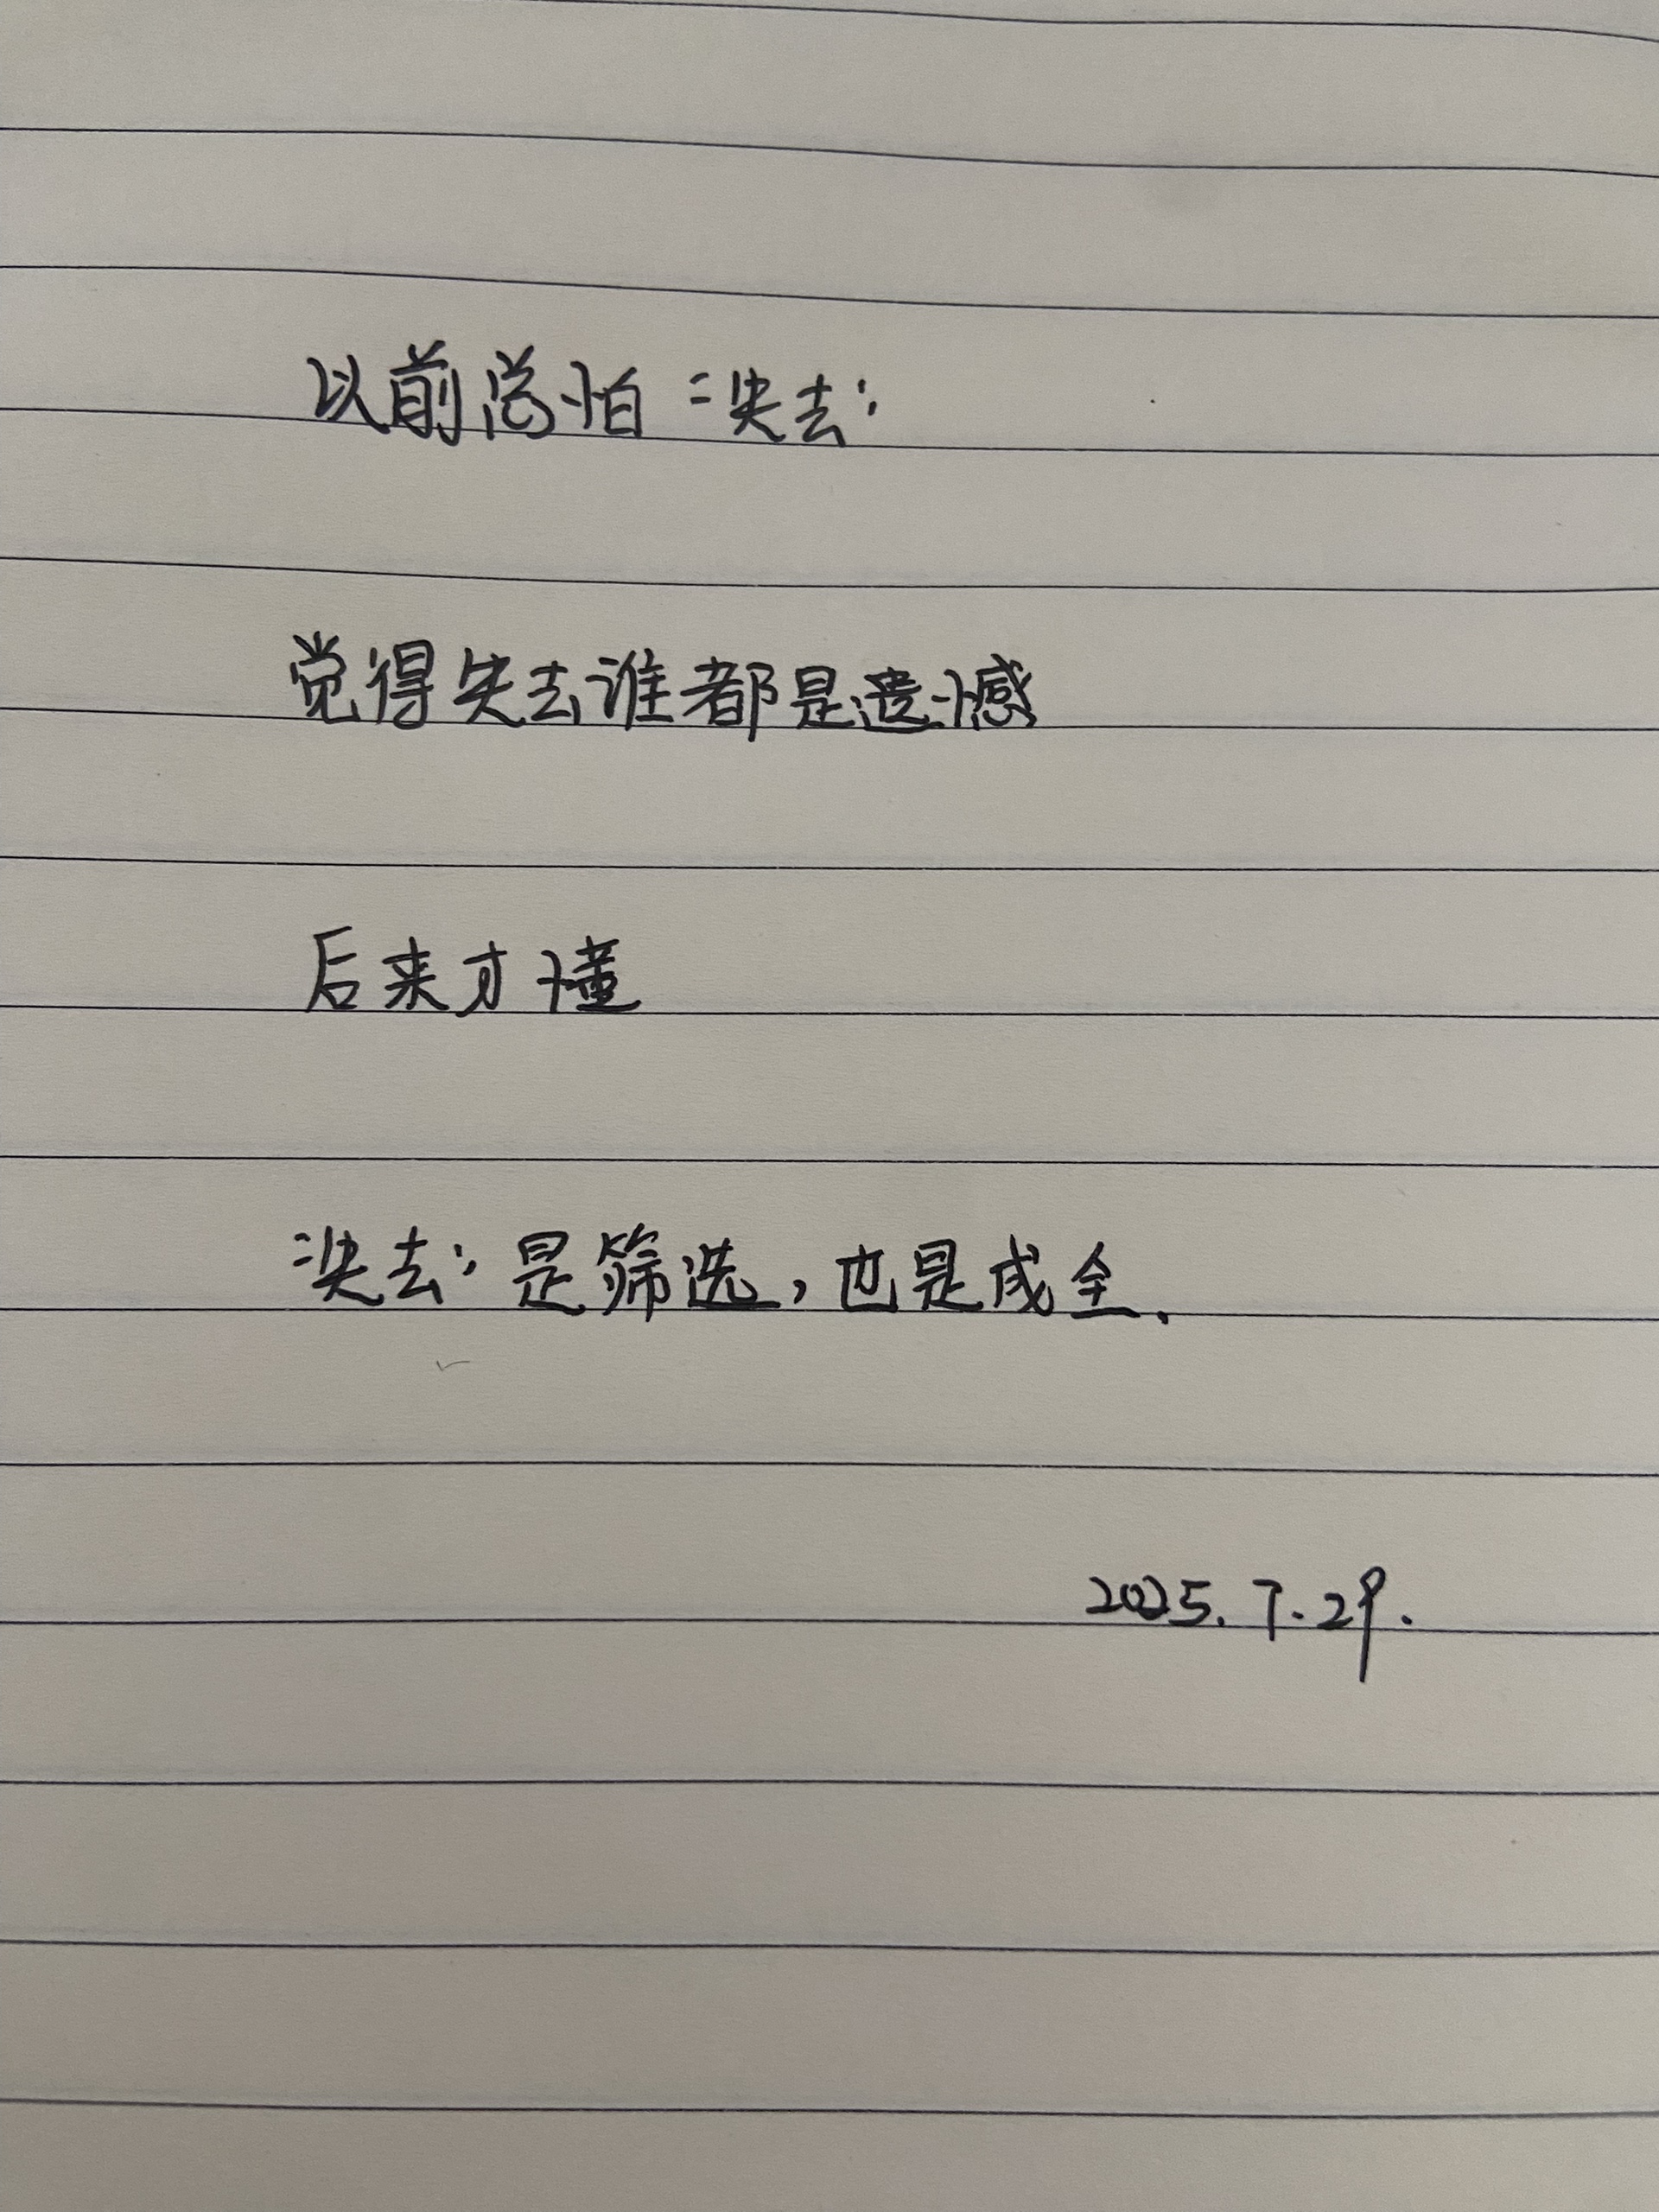 以前总怕“失去”
觉得失去谁都是遗憾
后来才懂
“失去”是筛选，也是成全.
2025.7.29.